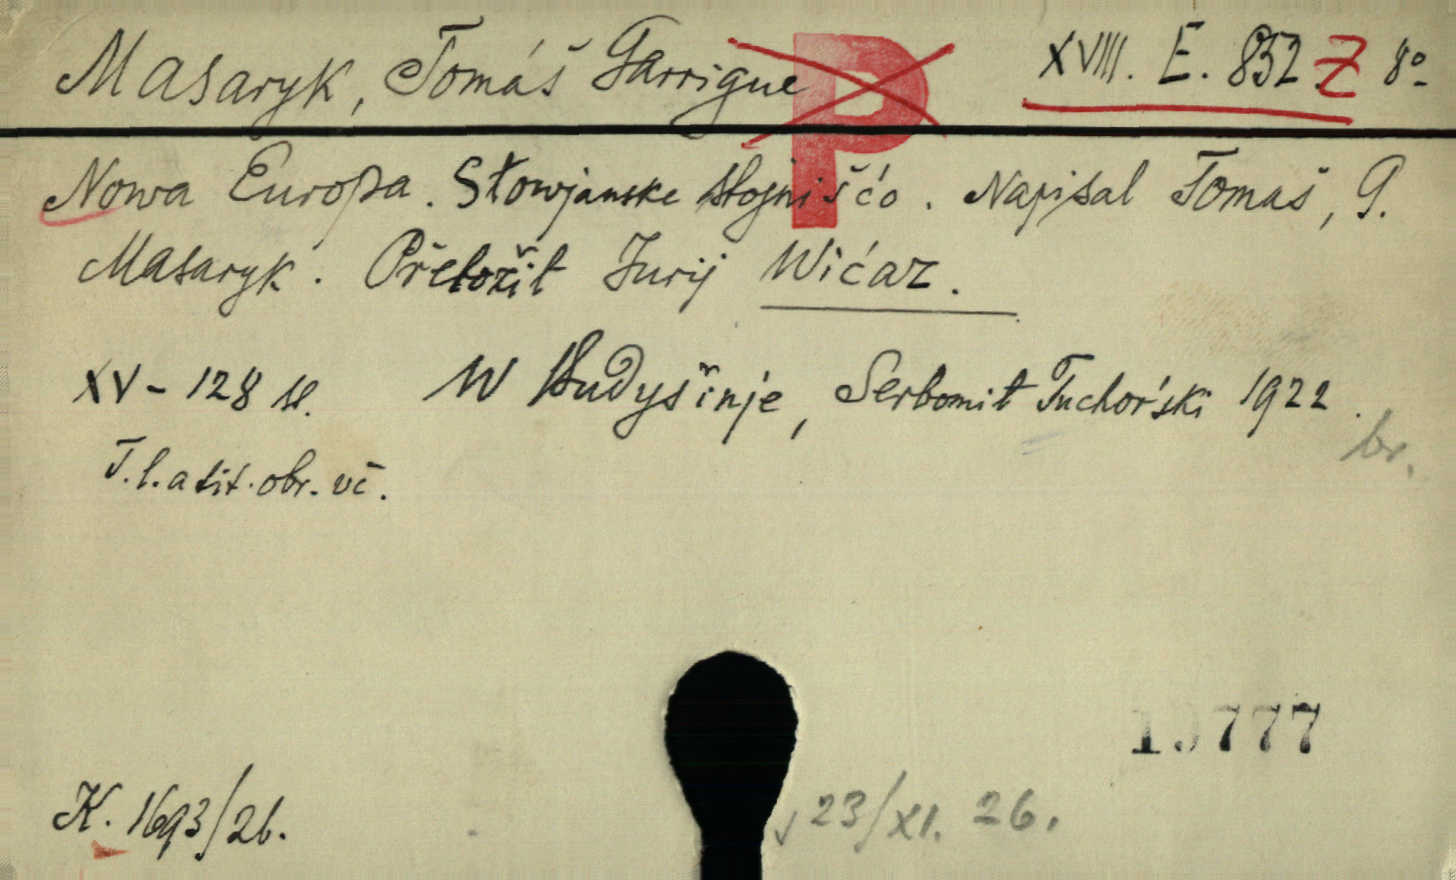 Masaryk, Tomáš Garrigue P XVIII. E. 852 Z 8º
Nowa Europa. Słowjanske stojnišćo. Napisal Tomaš, G.
Masaryk. Přełožił Jurij Wićaz.
XV - 128 s. W Budyšinje, Serbomił Tuchoŕski 1922.
br.
T. l. a tit. obr. vč.
777
K. 1693/26. 23/XI. 26.